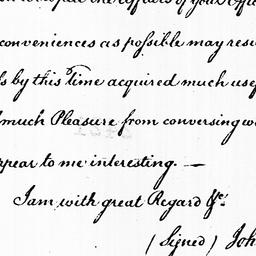 the affairs of your
conveniences as possible may
by this Time acquired much
much Pleasure from conversing
to me interesting. —
I am with great Regard &c.
(Signed) Joh